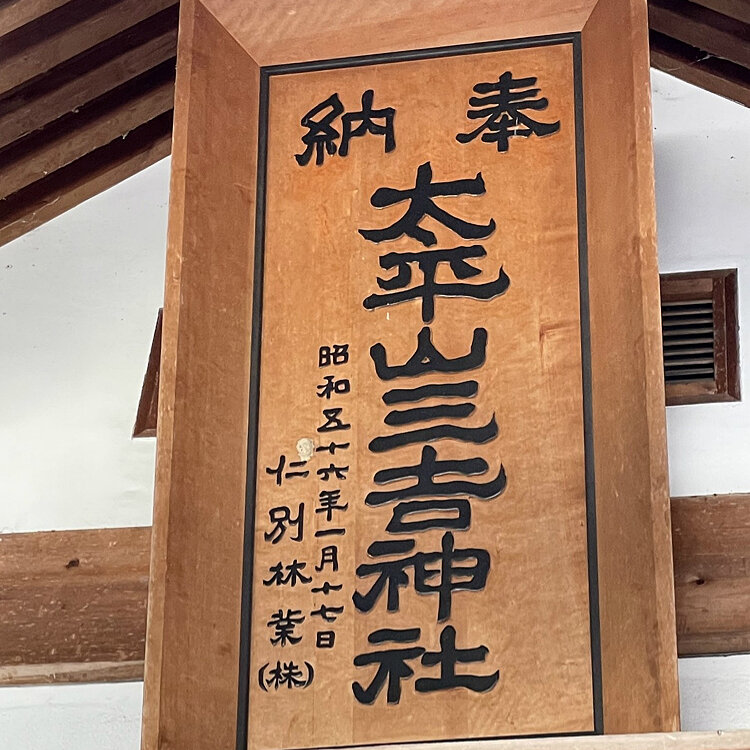 奉納
太平山三吉神社
昭和五十六年一月十七日
仁別林業(株)